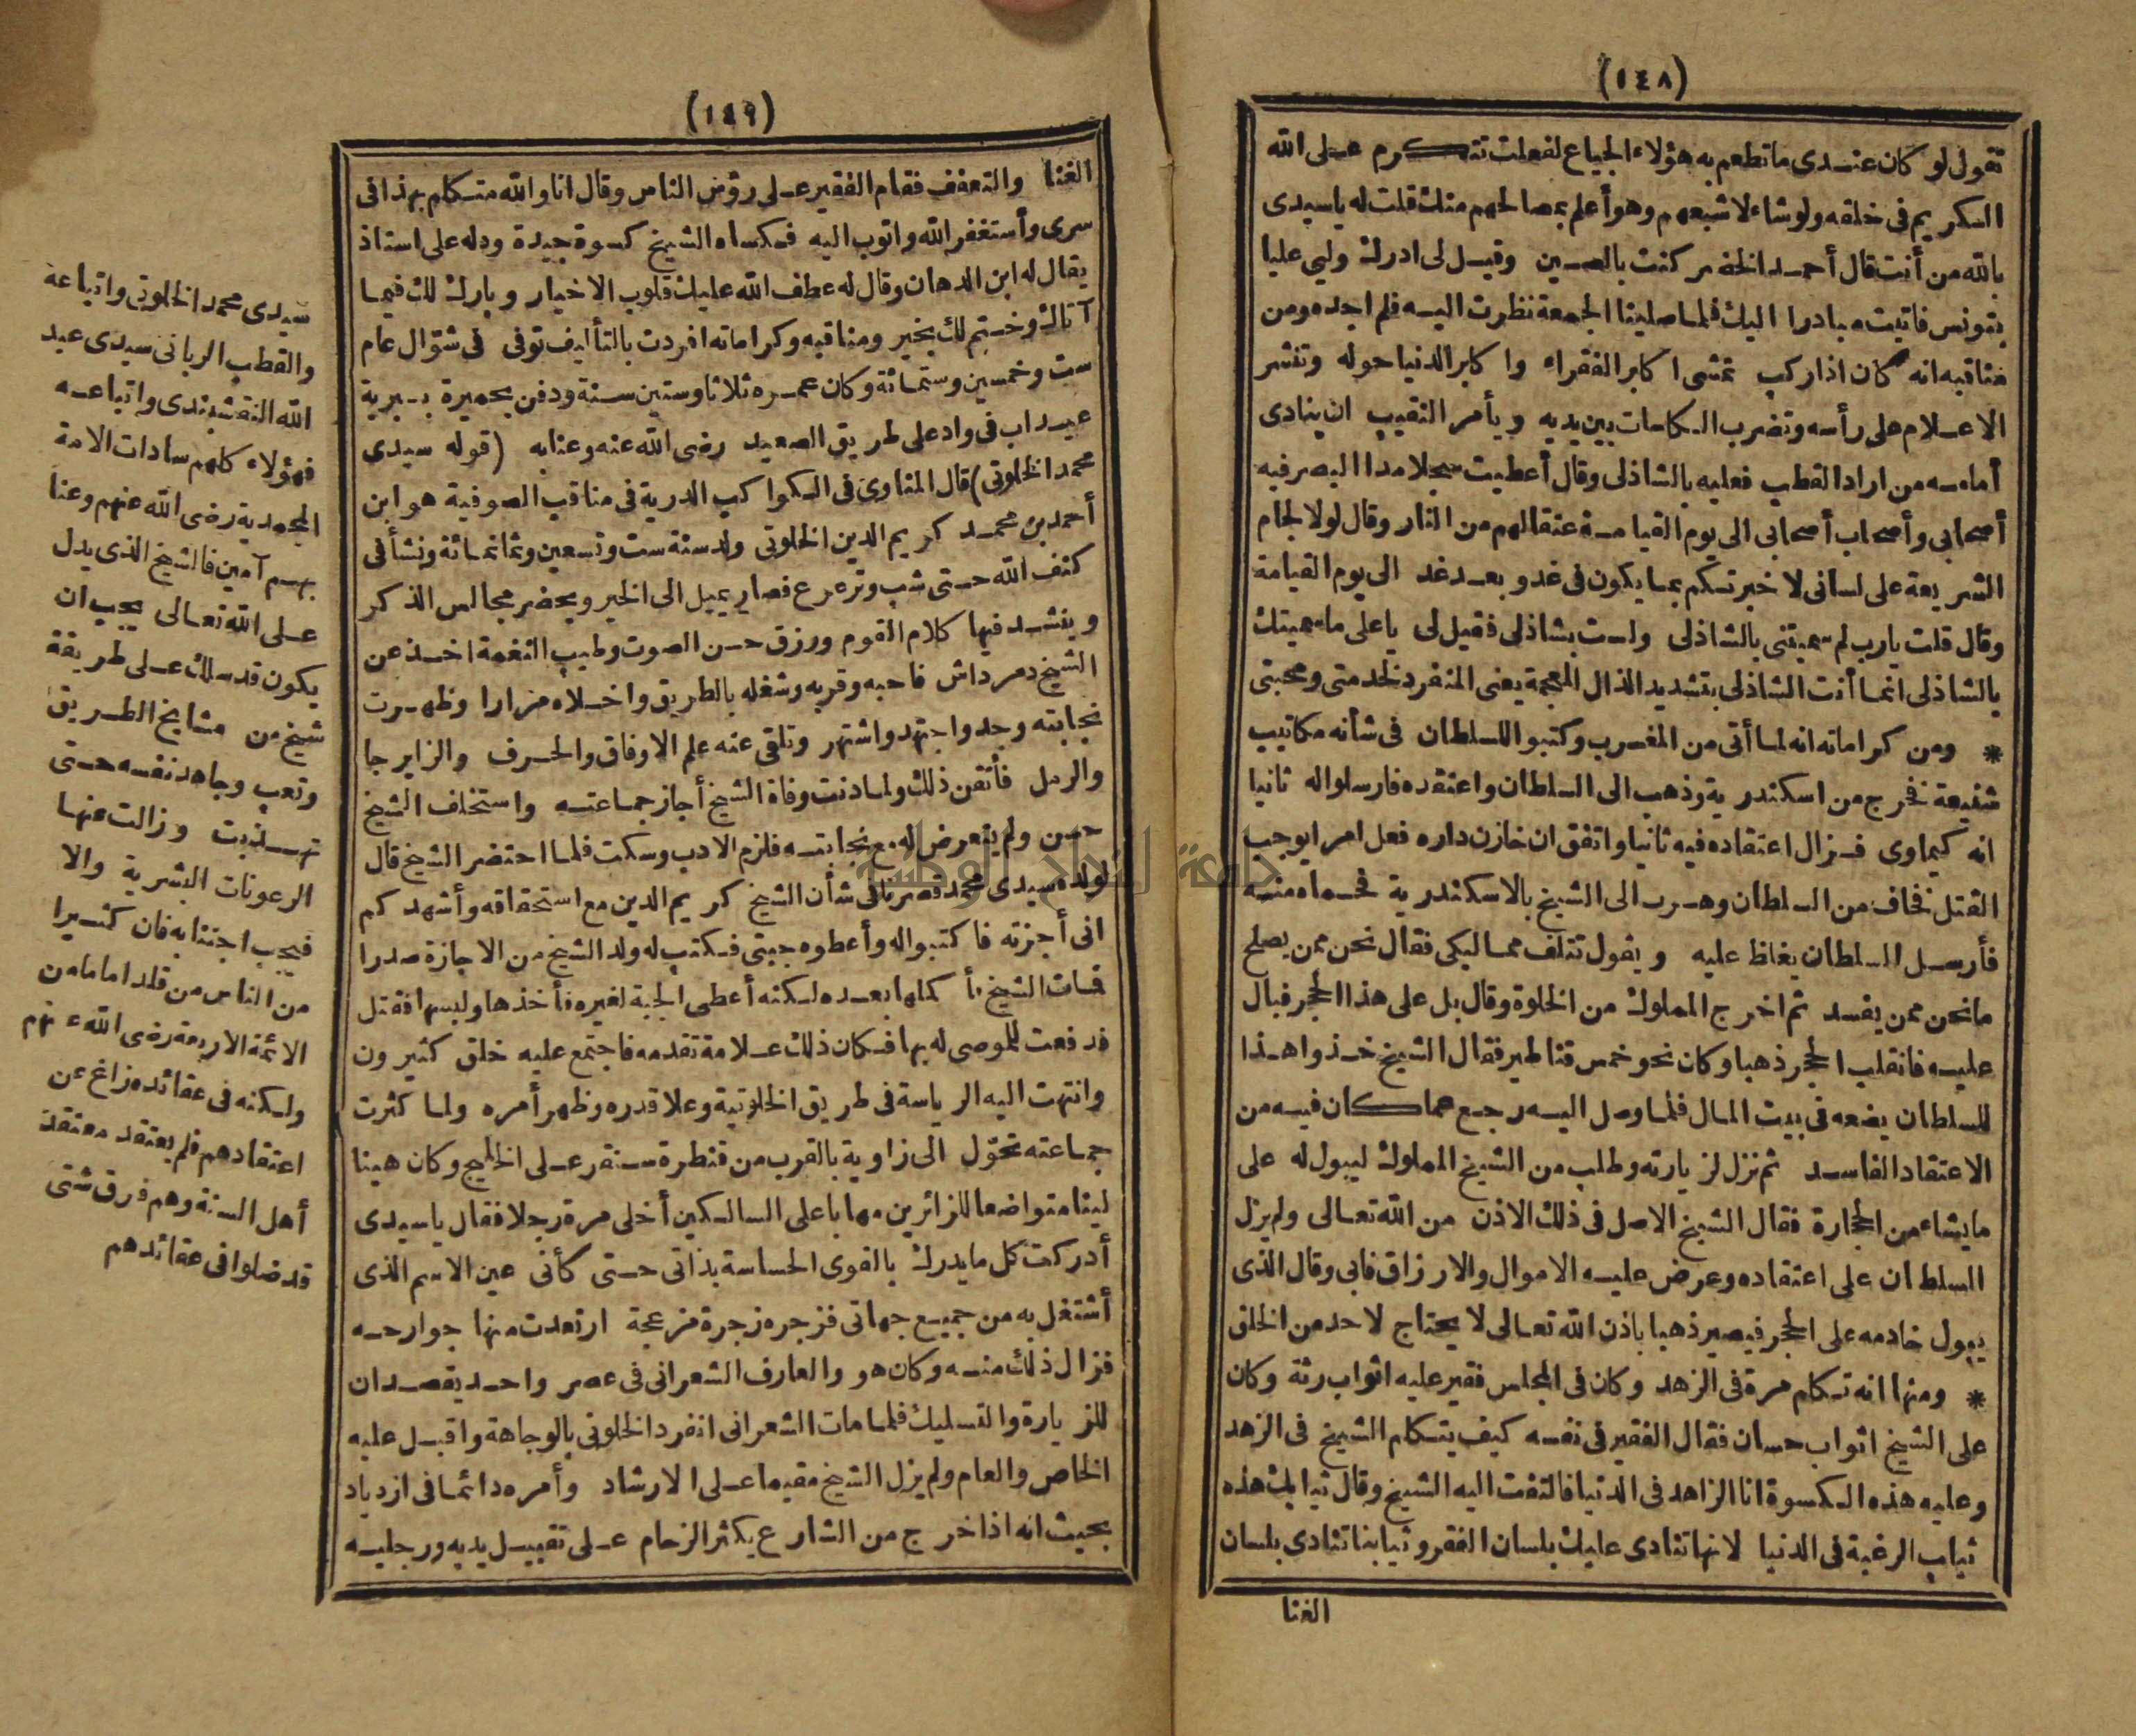 (١٤٨)
تقول لو كان عندى ما تطعم به هؤلاء الجياع لفعلت تتكرم على الله
الكريم فى خلقه ولو شاء لاشبعهم وهو أعلم بمصالحهم منك قلت له ياسيدى
بالله من أنت قال أحمد الخضر كنت بالصين وقيل لى ادرك وليى عليا
بتونس فاتيت مبادرا اليك فلما صلينا الجمعة نظرت اليه فلم اجده ومن
مناقبه انه كان اذا ركب تمشى اكابر الفقراء واكابر الدنيا حوله وتنشر
الاعلام على رأسه وتضرب الكاسات بين يديه ويأمر النقيب ان ينادى
أمامه من اراد القطب فعليه بالشاذلى وقال أعطيت سجلا مدا البصر فيه
أصحابى وأصحاب أصحابى الى يوم القيامة عتقا لهم من النار وقال لولا لجام
الشريعة على لسانى لاخبرتكم بما يكون فى غد وبعد غد الى يوم القيامة
وقال قلت يارب لم سميتنى بالشاذلى ولست بشاذلى فقيل لى ياعلى ما سميتك
بالشاذلى انما أنت الشاذلى بتشديد الذال المعجمة يعنى المنفرد لخدمتى ومحبتى
* ومن كراماته انه لما أتى من المغرب وكتبوا للسلطان فى شأنه مكاتيب
شنيعة فخرج من اسكندرية وذهب الى السلطان واعتقده فارسلوا له ثانيا
انه كيماوى فزال اعتقاده فيه ثانيا واتفق ان خازن داره فعل امرا يوجب
القتل فخاف من السلطان وهرب الى الشيخ بالاسكندرية فحماه منه
فأرسل السلطان يغلظ عليه ويقول تتلف مماليكى فقال نحن ممن يصلح
ما نحن ممن يفسد ثم اخرج المملوك من الخلوة وقال بل على هذا الحجر فبال
عليه فانقلب الحجر ذهبا وكان نحو خمس قناطير فقال الشيخ خذوا هذا
للسلطان يضعه فى بيت المال فلما وصل اليه رجع عما كان فيه من
الاعتقاد الفاسد ثم نزل لزيارته وطلب من الشيخ المملوك ليبول له على
ما يشاء من الحجارة فقال الشيخ الاصل فى ذلك الاذن من الله تعالى ولم يزل
السلطان على اعتقاده وعرض عليه الاموال والارزاق فابى وقال الذى
يبول خادمه على الحجر فيصير ذهبا باذن الله تعالى لا يحتاج لاحد من الخلق
* ومنها انه تكلم مرة فى الزهد وكان فى المجلس فقير عليه اثواب رثة وكان
على الشيخ اثواب حسان فقال الفقير فى نفسه كيف يتكلم الشيخ فى الزهد
وعليه هذه الكسوة انا الزاهد فى الدنيا فالتفت اليه الشيخ وقال ثيابك هذه
ثياب الرغبة فى الدنيا لانها تنادى عليك بلسان الفقر وثيابنا تنادى بلسان
الغنا
(١٤٩)
الغنا والتعفف فقام الفقير على رؤس الناس وقال انا والله متكلم بهذا فى
سرى وأستغفر الله واتوب اليه فكساه الشيخ كسوة جيدة ودله على استاذ
يقال له ابن الدهان وقال له عطف الله عليك قلوب الاخيار وبارك لك فيما
آتاك وختم لك بخير ومناقبه وكراماته افردت بالتأليف توفى فى شوّال عام
ست وخمسين وستمائة وكان عمره ثلاثا وستين سنة ودفن بحميرة ببرية
عيداب فى واد على طريق الصعيد رضى الله عنه وعنابه (قوله سيدى
محمد الخلوتى) قال المناوى فى الكواكب الدرية فى مناقب الصوفية هو ابن
أحمد بن محمد كريم الدين الخلوتى ولد سنة ست وتسعين وثمانمائة ونشأ فى
كنف الله حتى شب وترعرع فصار يميل الى الخير ويحضر مجالس الذكر
وينشد فيها كلام القوم ورزق حسن الصوت وطيب النغمة اخذ عن
الشيخ دمرداش فاحبه وقربه وشغله بالطريق واخلاه مرارا وظهرت
نجابته وجد واجتهد واشتهر وتلقى عنه علم الاوفاق والحرف والزايرجا
والرمل فأتقن ذلك ولما دنت وفاة الشيخ أجاز جماعته واستخلف الشيخ
حسن ولم يتعرض له مع نجابته فلزم الادب وسكت فلما احتضر الشيخ قال
لولده سيدى محمد قصرنا فى شأن الشيخ كريم الدين مع استحقاقه وأشهدكم
انى أجزته فاكتبوا له وأعطوه جبتى فكتب له ولد الشيخ من الاجازة صدرا
فمات الشيخ فأكملها بعده لكنه أعطى الجبة لغيره فأخذها ولبسها فقتل
فدفعت للموصى له بها فكان ذلك علامة تقدمه فاجتمع عليه خلق كثيرون
وانتهت اليه الرياسة فى طريق الخلوتية وعلا قدره وظهر أمره ولما كثرت
جماعته تحوّل الى زاوية بالقرب من قنطرة سنقر على الخليج وكان هينا
لينا متواضعا للزائرين مهابا على السالكين أخلى مرة رجلا فقال ياسيدى
أدركت كل ما يدرك بالقوى الحساسة بذاتى حتى كأنى عين الاسم الذى
أشتغل به من جميع جهاتى فزجره زجرة مزعجة ارتعدت منها جوارحه
فزال ذلك منه وكان هو والعارف الشعرانى فى عصر واحد يقصدان
للزيارة والتسليك فلما مات الشعرانى انفرد الخلوتى بالوجاهة واقبل عليه
الخاص والعام ولم يزل الشيخ مقيما على الارشاد وأمره دائما فى ازدياد
بحيث انه اذا خرج من الشارع يكثر الزحام على تقبيل يديه ورجليه
سيدى محمد الخلوتى واتباعه
والقطب الربانى سيدى عبد
الله النقشبندى واتباعه
فهؤلاء كلهم سادات الامة
المحمدية رضى الله عنهم وعنا
بهم آمين فالشيخ الذى يدل
على الله تعالى يجب ان
يكون قد سلك على طريقة
شيخ من مشايخ الطريق
وتعب وجاهد نفسه حتى
تهذبت وزالت عنها
الرعونات البشرية والا
فيجب اجتنابه فان كثيرا
من الناس من قلد اماما من
الائمة الاربعة رضى الله عنهم
ولكنه فى عقائده زاغ عن
اعتقادهم فلم يعتقد معتقد
أهل السنة وهم فرق شتى
قد ضلوا فى عقائدهم